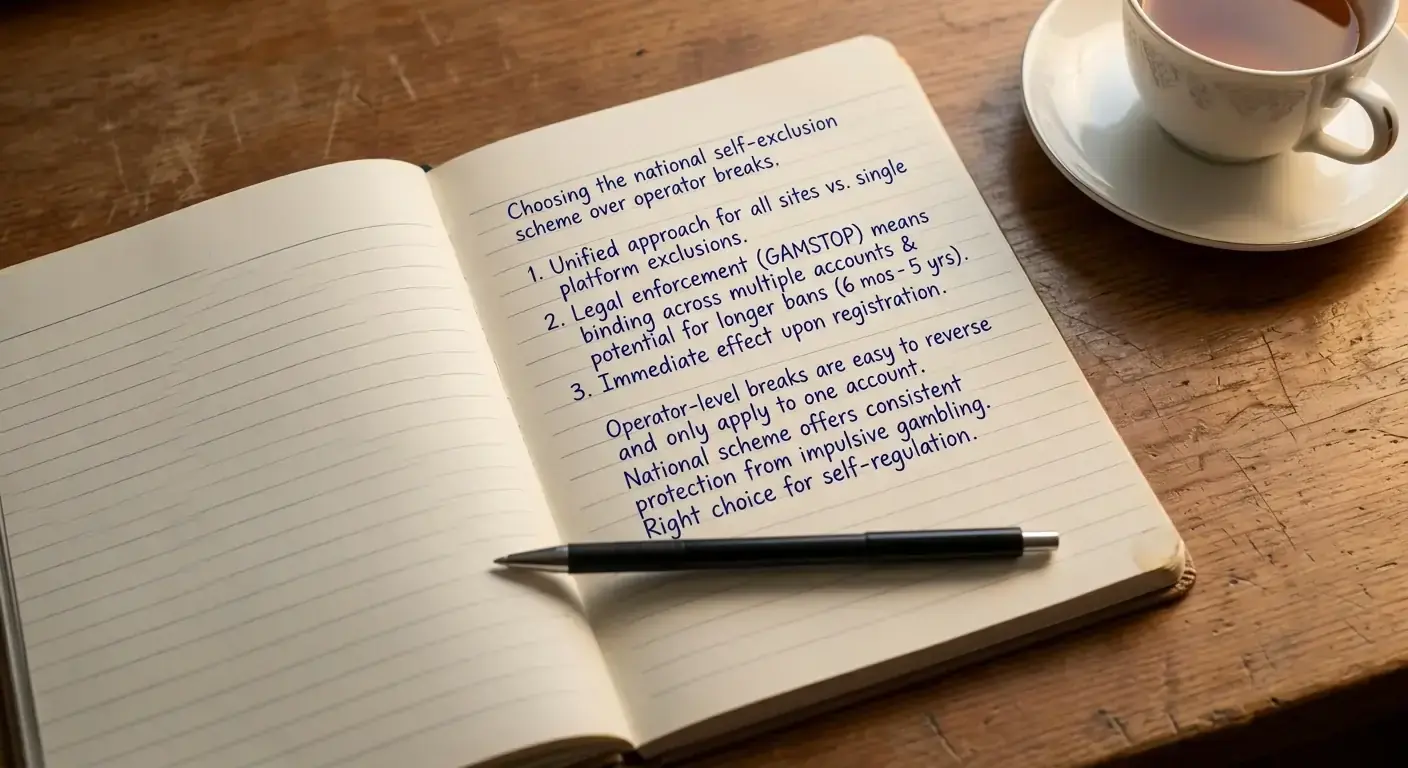 Choosing the national self-exclusion
scheme over operator breaks.
1. Unified approach for all sites vs. single
platform exclusions.
2. Legal enforcement (GAMSTOP) means
binding across multiple accounts &
potential for longer bans (6 mos - 5 yrs).
3. Immediate effect upon registration.
Operator-level breaks are easy to reverse
and only apply to one account.
National scheme offers consistent
protection from impulsive gambling.
Right choice for self-regulation.